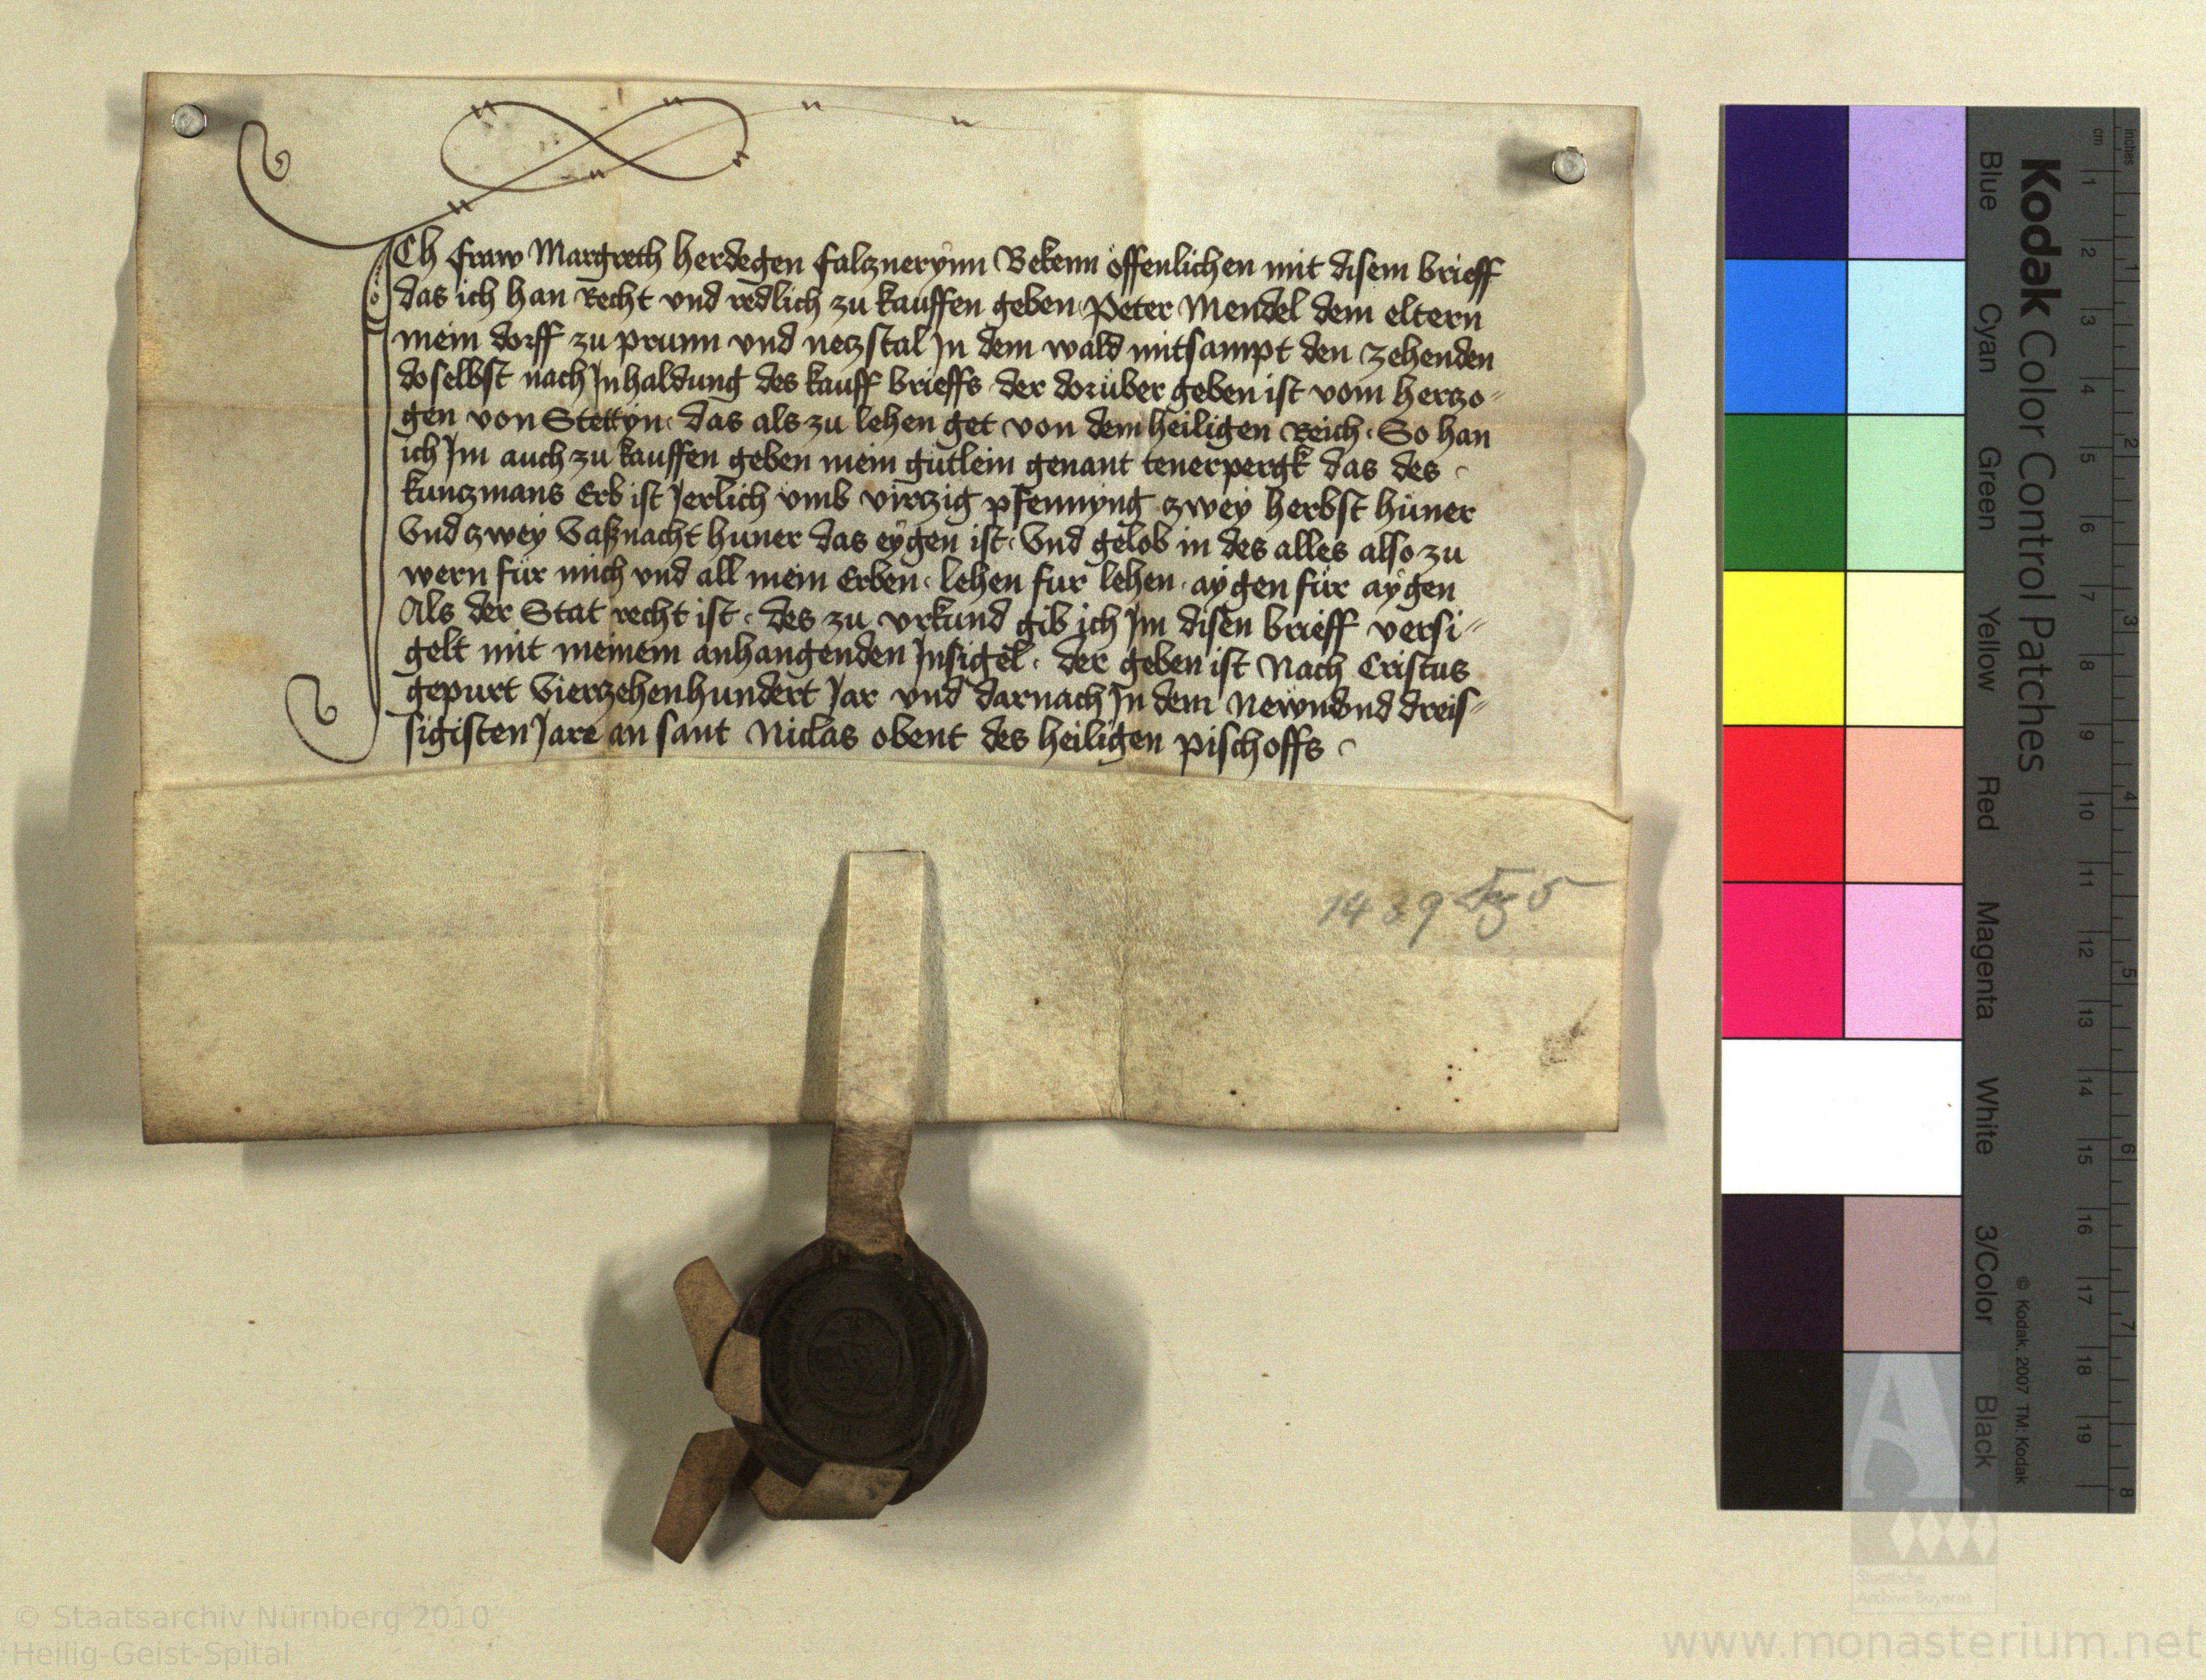 ICh fraw Margreth herdegen falznerynn Bekenn öffenlichen mit disem brieff
das ich han Recht vnd redlich zu kauffen geben Peter Mendel dem eltern
mein dorff zu prunn vnd netzstal Jn dem wald mitsampt den zehenden
doselbst nach Jnhaldung des kauff brieffs der dorüber geben ist vom hertzo-
gen von Stettyn. das als zu lehen get von dem heiligen Reich. So han
ich Jm auch zu kauffen geben mein gütlein genant teuerpergk das des
kunczmans Erb ist Jerlich vmb virtzig pfennyng zwey herbst hüner
Vnd zwey Vaßnacht huner das eygen ist. Vnd gelob in des alles also zu
wern für mich vnd all mein Erben. lehen fur lehen. aygen für aygen
Als der Stat recht ist. des zu vrkund gib ich Jm disen brieff versi-
gelt mit meinem anhangenden Jnsigel. der geben ist Nach Cristus
gepurt Vierzehenhundert Jar vnd darnach Jn dem Newnvnd dreis-
sigisten Jare an sant Niclas obent des heiligen pischoffs
1439 5
Kodak Color Control Patches
Blue Cyan Green Yellow Red Magenta White 3/Color Black
© Kodak, 2007 TM: Kodak
cm 1 2 3 4 5 6 7 8 9 10 11 12 13 14 15 16 17 18 19
inches 1 2 3 4 5 6 7 8
A
Staatliche
Archive Bayerns
© Staatsarchiv Nürnberg 2010
Heilig-Geist-Spital
www.monasterium.net